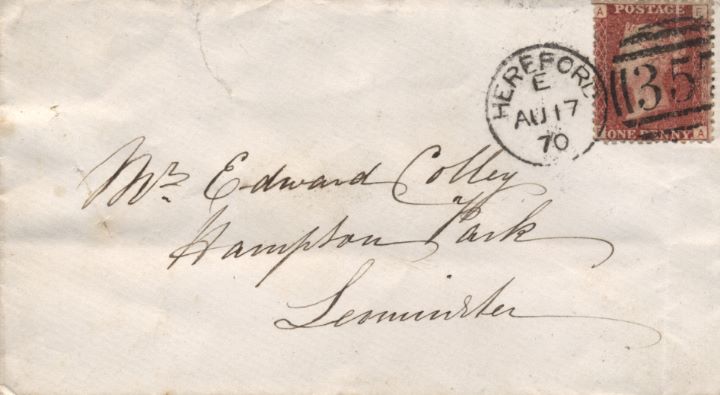 A E
POSTAGE
HEREFORD
E
AU 17
70
35
ONE PENNY
A
Mrs Edward Colley
Hampton Park
Leominster